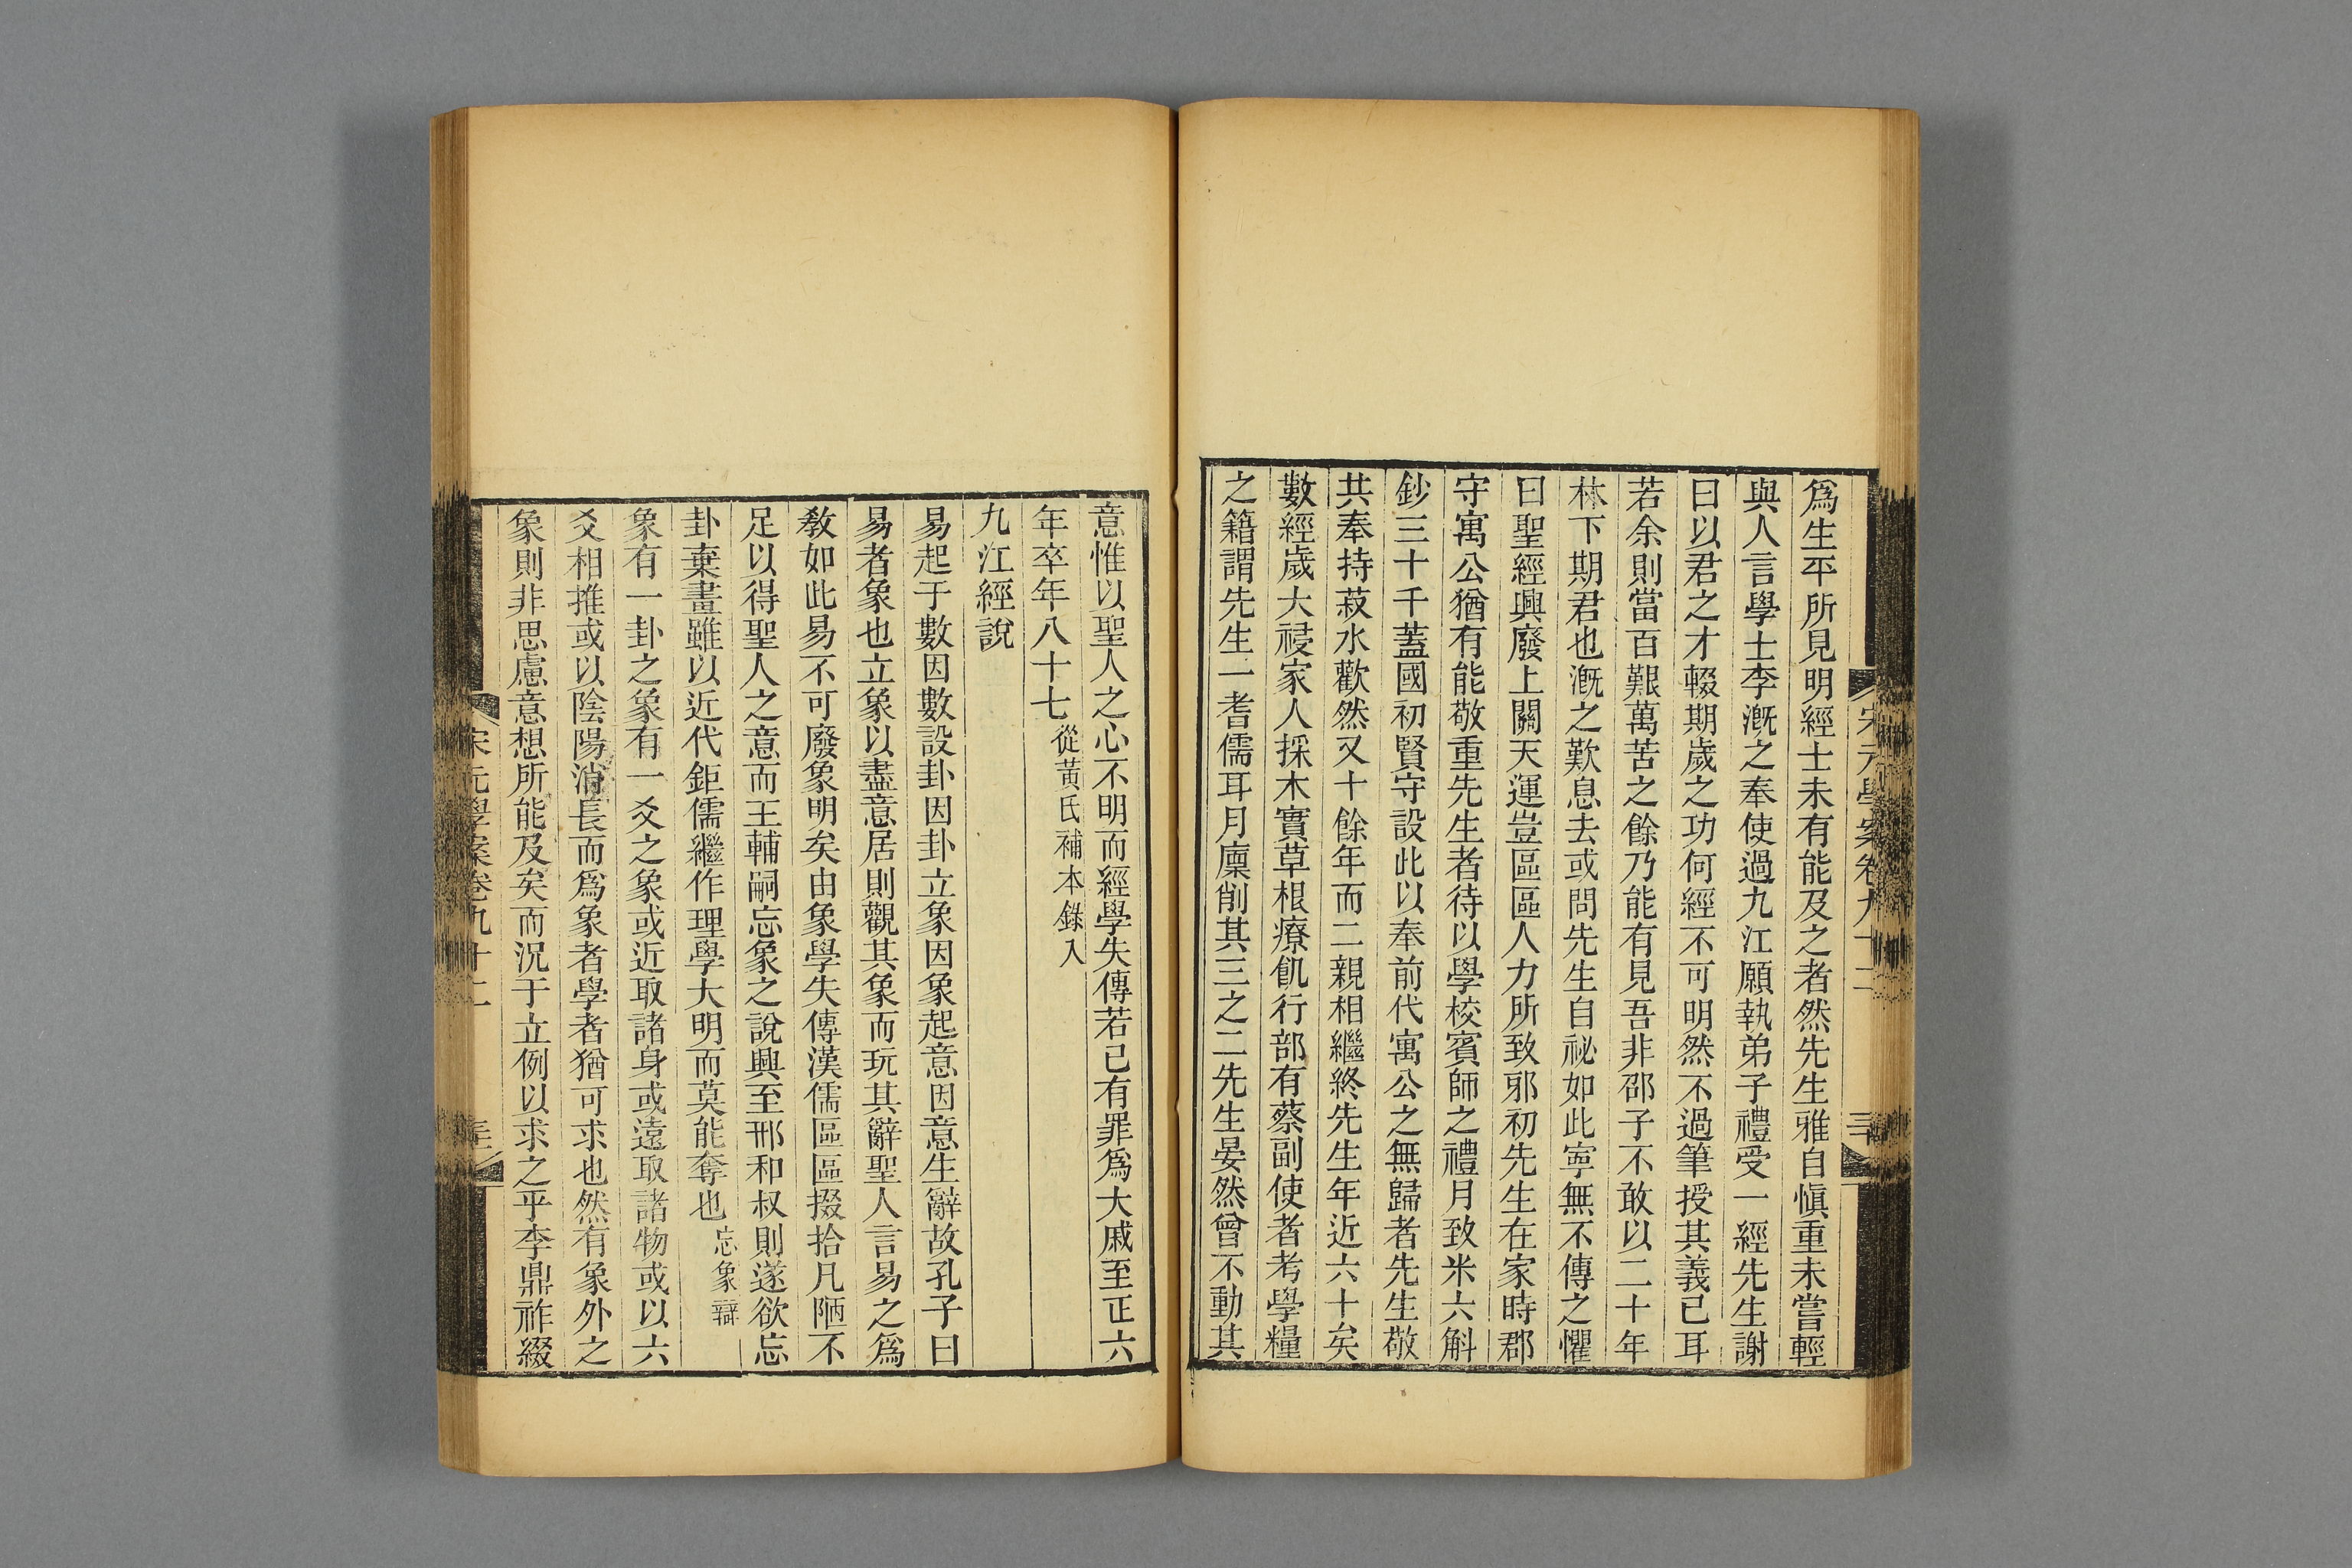 宋元學案卷九十二
三十
爲生平所見明經士未有能及之者然先生雅自愼重未嘗輕
與人言學士李漑之奉使過九江願執弟子禮受一經先生謝
曰以君之才輟期歲之功何經不可明然不過筆授其義已耳
若余則當百艱萬苦之餘乃能有見吾非邵子不敢以二十年
林下期君也漑之歎息去或問先生自祕如此寧無不傳之懼
曰聖經興廢上關天運豈區區人力所致邪初先生在家時郡
守寓公猶有能敬重先生者待以學校賓師之禮月致米六斛
鈔三十千蓋國初賢守設此以奉前代寓公之無歸者先生敬
共奉持菽水歡然又十餘年而二親相繼終先生年近六十矣
數經歲大祲家人採木實草根療飢行部有蔡副使者考學糧
之籍謂先生一耆儒耳月廩削其三之二先生晏然曾不動其
意惟以聖人之心不明而經學失傳若已有罪爲大戚至正六
年卒年八十七從黃氏補本錄入
九江經說
易起于數因數設卦因卦立象因象起意因意生辭故孔子曰
易者象也立象以盡意居則觀其象而玩其辭聖人言易之爲
敎如此易不可廢象明矣由象學失傳漢儒區區掇拾凡陋不
足以得聖人之意而王輔嗣忘象之說興至邢和叔則遂欲忘
卦棄畫雖以近代鉅儒繼作理學大明而莫能奪也忘象辯
象有一卦之象有一爻之象或近取諸身或遠取諸物或以六
爻相推或以陰陽消長而爲象者學者猶可求也然有象外之
象則非思慮意想所能及矣而況于立例以求之乎李鼎祚綴
宋元學案卷九十二